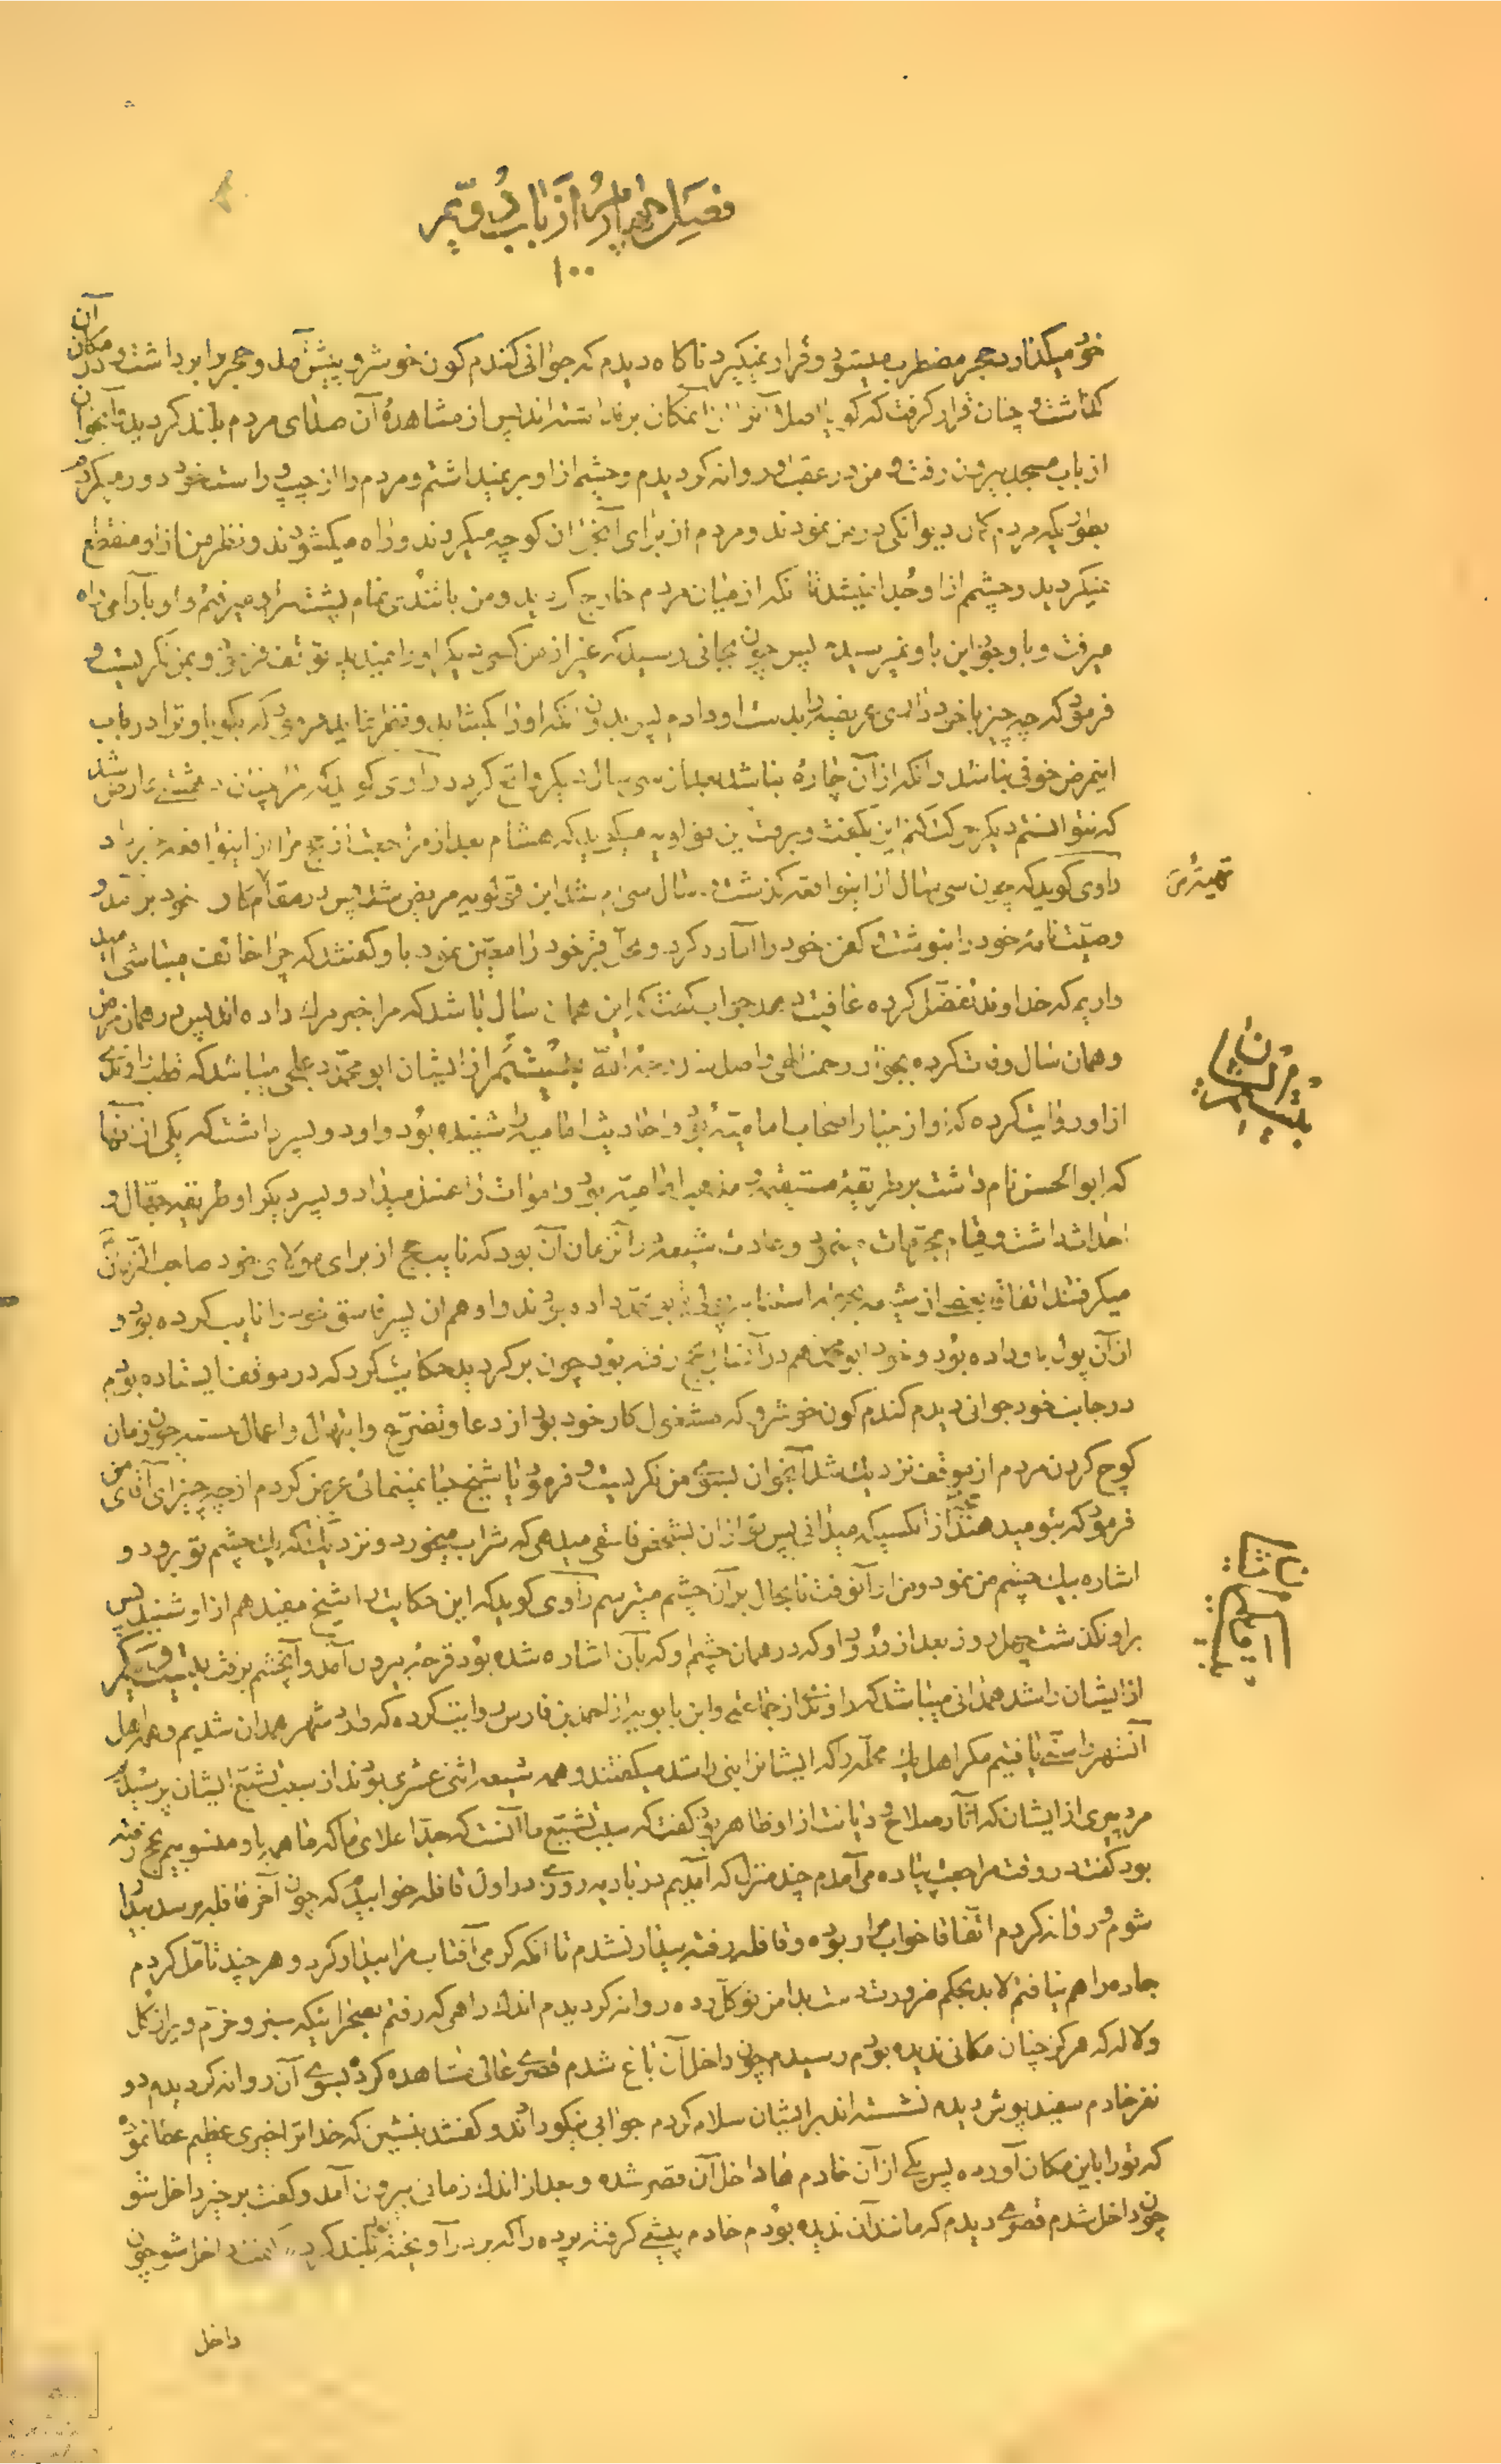 فصل چهارم از باب دویم
۱۰۰
خود میگذارد حجر مضطرب میشود و قرار نمیگیرد ناکاه دیدم که جوانی کندم کون خوشرو پیش آمد و حجر را برداشت و در آن مکان
کذاشت و چنان قرار کرفت که کویا اصلا آنرا از آنمکان برنداشته اند پس از مشاهدهٔ آن صداى مردم بلند کردید و آنجوان
از باب مسجد بیرون رفت و من در عقب او روانه کردیدم و چشم از او برنمیداشتم و مردم را از چپ و راست خود دور میکردم
بطوریکه مردم کمان دیوانکی در من نمودند و مردم از برای آنجوان کوچه میکردند و راه میکشودند و نظر من از او منقطع
نمیکردید و چشمم از او جُدا نمیشد تا آنکه از میان مردم خارج کردید و من باتندی تمام پشت سر او میرفتم و او بآرامی راه
میرفت و با وجود این باو نمیرسیدم پس چون بجائی رسید که غیر از من کسی دیکر او را نمیدید توقف فرمود و بمن نکریست و
فرمود که چه چیز با خود داری عریضه را بدست او دادم پس بدون آنکه او را بکشاید و نظر نماید فرمود که بکو باو ترا در باب
اینمرض خوفی نباشد و آنکه از آن چاره نباشد بعد از سی سال دیکر واقع کردد راوی کوید که مرا چنان دهشتی عارض شد
که نتوانستم دیکر حرکت کنم این بکفت و برفت ابن قولویه میکوید که هشام بعد از مراجعت از حج مرا از اینواقعه خبر داد
راوی کوید که چون سی سال از اینواقعه کذشت و سال سی ام شد ابن قولویه مریض شد پس در مقام کار خود برآمد و
وصیّت نامهٔ خود را بنوشت و کفن خود را آماده کرد و محلّ قبر خود را معیّن نمود باو کفتند که چرا خائف میباشی امید
داریم که خداوند تفضّل کرده عافیت دهد جواب کفت که این همان سال باشد که مرا خبر مرک داده اند پس در همان مرض
و همان سال وفات کرده بجوار رحمت الهی واصل شد رحمة اللّه بیستم از ایشان ابو محمّد دعلجی میباشد که قطب راوندی
از او روایت کرده که او از خیار اصحاب امامیّه بود و احادیث امامیه را شنیده بود و او دو پسر داشت که یکی از آنها
که ابوالحسن نام داشت بر طریقهٔ مستقیمه و مذهب امامیّه بود و اموات را غسل میداد و پسر دیکر او طریقهٔ جهّال و
احداث داشت و قیام بمحرّمات مینمود و عادت شیعه در آنزمان آن بود که نایب حج از برای مولای خود صاحب الزمان
میکرفتند اتفاقا بعضی از شیعه وجه استنابه را بابو محمّد داده بودند و او همان پسر فاسق خود را نایب کرده بود و
از آن پول باو داده بود و خود ابو محمّد هم در آنسال بحج رفته بود چون برکردید حکایت کرد که در موقف ایستاده بودم
در جانب خود جوانی دیدم کندم کون خوشرو که مشغول کار خود بود از دعا و تضرّع و ابتهال و اعمال مستحبه چون زمان
کوچ کردن مردم از موقف نزدیک شد آنجوان بسوی من نکریست و فرمود یا شیخ حیا نمینمائی عرض کردم از چه چیز ای آقای من
فرمود که بتو میدهند حجّی از آنکسیکه میدانی پس تو از آن بشخص فاسقی میدهی که شراب میخورد و نزدیک است که یک چشم تو برود و
اشاره بیک چشم من نمود و من از آنوقت تا بحال بر آن چشم میترسم راوی کوید که این حکایت را شیخ مفید هم از او شنید پس
بر او نکذشت چهل روز بعد از ورود او که در همان چشم او که بآن اشاره شده بود قرحهٔ بیرون آمد و آنچشم برفت بیست و یکم
از ایشان راشد همدانی میباشد که راوندی از جماعتی و ابن بابویه از احمد بن فارس روایت کرده که وارد شهر همدان شدیم و همه اهل
آنشهر را سنّی یافتیم مکر اهل یک محلّه را که ایشانرا بنی راشد میکفتند و همه شیعه اثنی عشری بودند از سبب تشیّع ایشان پرسیدم
مرد پیری از ایشان که آثار صلاح و دیانت از او ظاهر بود کفت که سبب تشیّع ما آنست که جدّ اعلای ما که ما همه باو منسوبیم بحج رفته
بود کفت در وقت مراجعت پیاده می آمدم چند منزل که آمدیم در بادیه روزی در اول قافله خوابیدم که چون آخر قافله برسد بیدار
شوم و روانه کردم اتّفاقا خواب مرا ربوده و قافله رفته بیدار نشدم تا آنکه کرمی آفتاب مرا بیدار کرد و هر چند تأمل کردم
جاده را هم نیافتم لابد بحکم ضرورت دست بدامن توکل زده روانه کردیدم اندک راهی که رفتم بصحرائیکه سبز و خرّم و پر از کل
و لاله که هرکز چنان مکانی ندیده بودم رسیدم چون داخل آن باغ شدم قصری عالی مشاهده کرده بسوی آن روانه کردیدم دو
نفر خادم سفید پوش دیدم نشسته اند بر ایشان سلام کردم جوابی نیکو دادند و کفتند بنشین که خدا ترا خیری عظیم عطا نموده
که تو را باین مکان آورده پس یکی از آن خادم ها داخل آن قصر شده و بعد از اندک زمانی بیرون آمد و کفت برخیز داخل شو
چون داخل شدم قصری دیدم که مانند آن ندیده بودم خادم پیشی کرفته پرده را که بر در آویخته بود بلند کرد و کفت داخل شو چون
داخل
تهیئه س